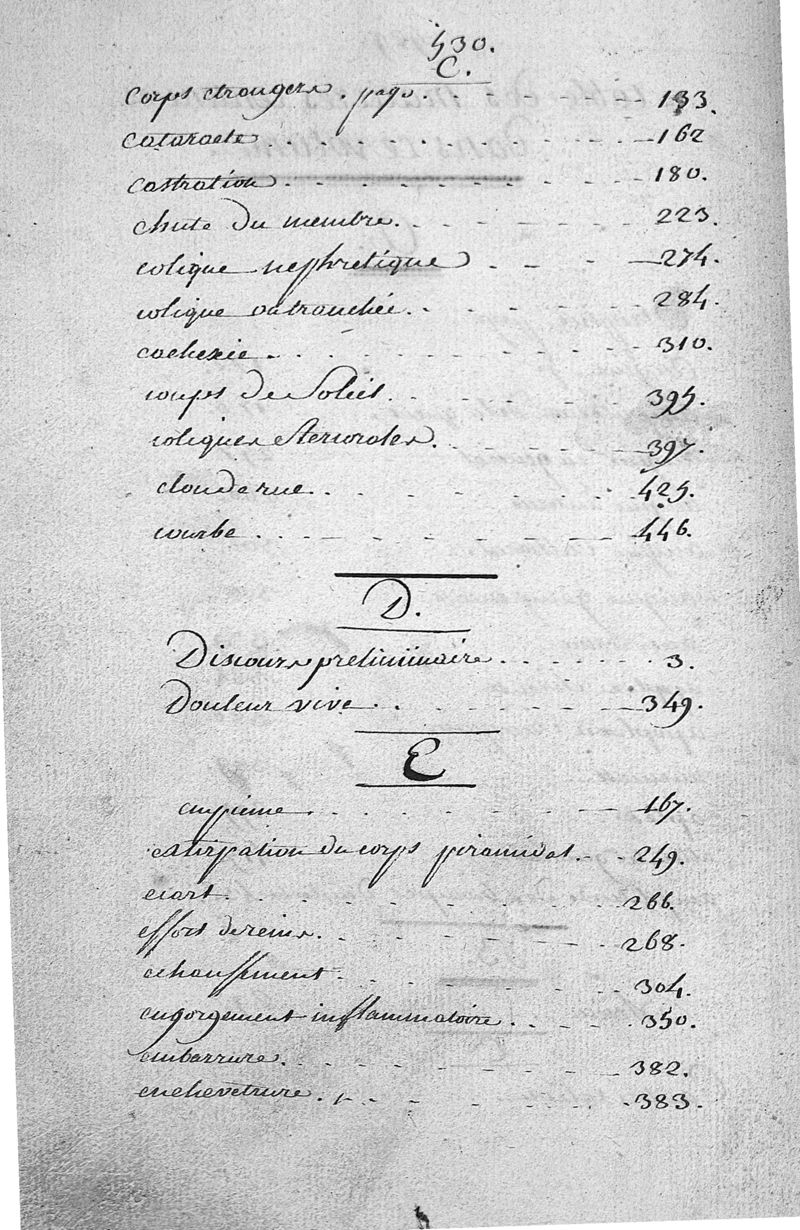 430.
C.
corps etrangers. page. - - - - - 133.
cataracte . . . . . . . 162
castration . - - - - - - 180.
chute du membre. - - - - - 223.
colique nephretique . - - - 274.
colique ou tranchée. - - - - 284.
cachexie - - - - - - 310.
coups de Soleil. - - - - - 395.
coliques stercorales. - - - - 397.
clou de rue. - - - - - - 425.
courbe - - - - - - - 446.
D.
Discours preliminaire. . . . . . . 3.
Douleur vive. - - - - - - 349.
E
empieme . - - - - - - 167.
extirpation du corps piramidal. - 249.
ecart. - - - - - - - 266.
effort de reins. - - - - - - 268.
echauffement. - - - - - - 304.
engorgement inflammatoire. - - - 350.
embarrure. - - - - - - - 382.
enchevetrure. - - - - - - 383.